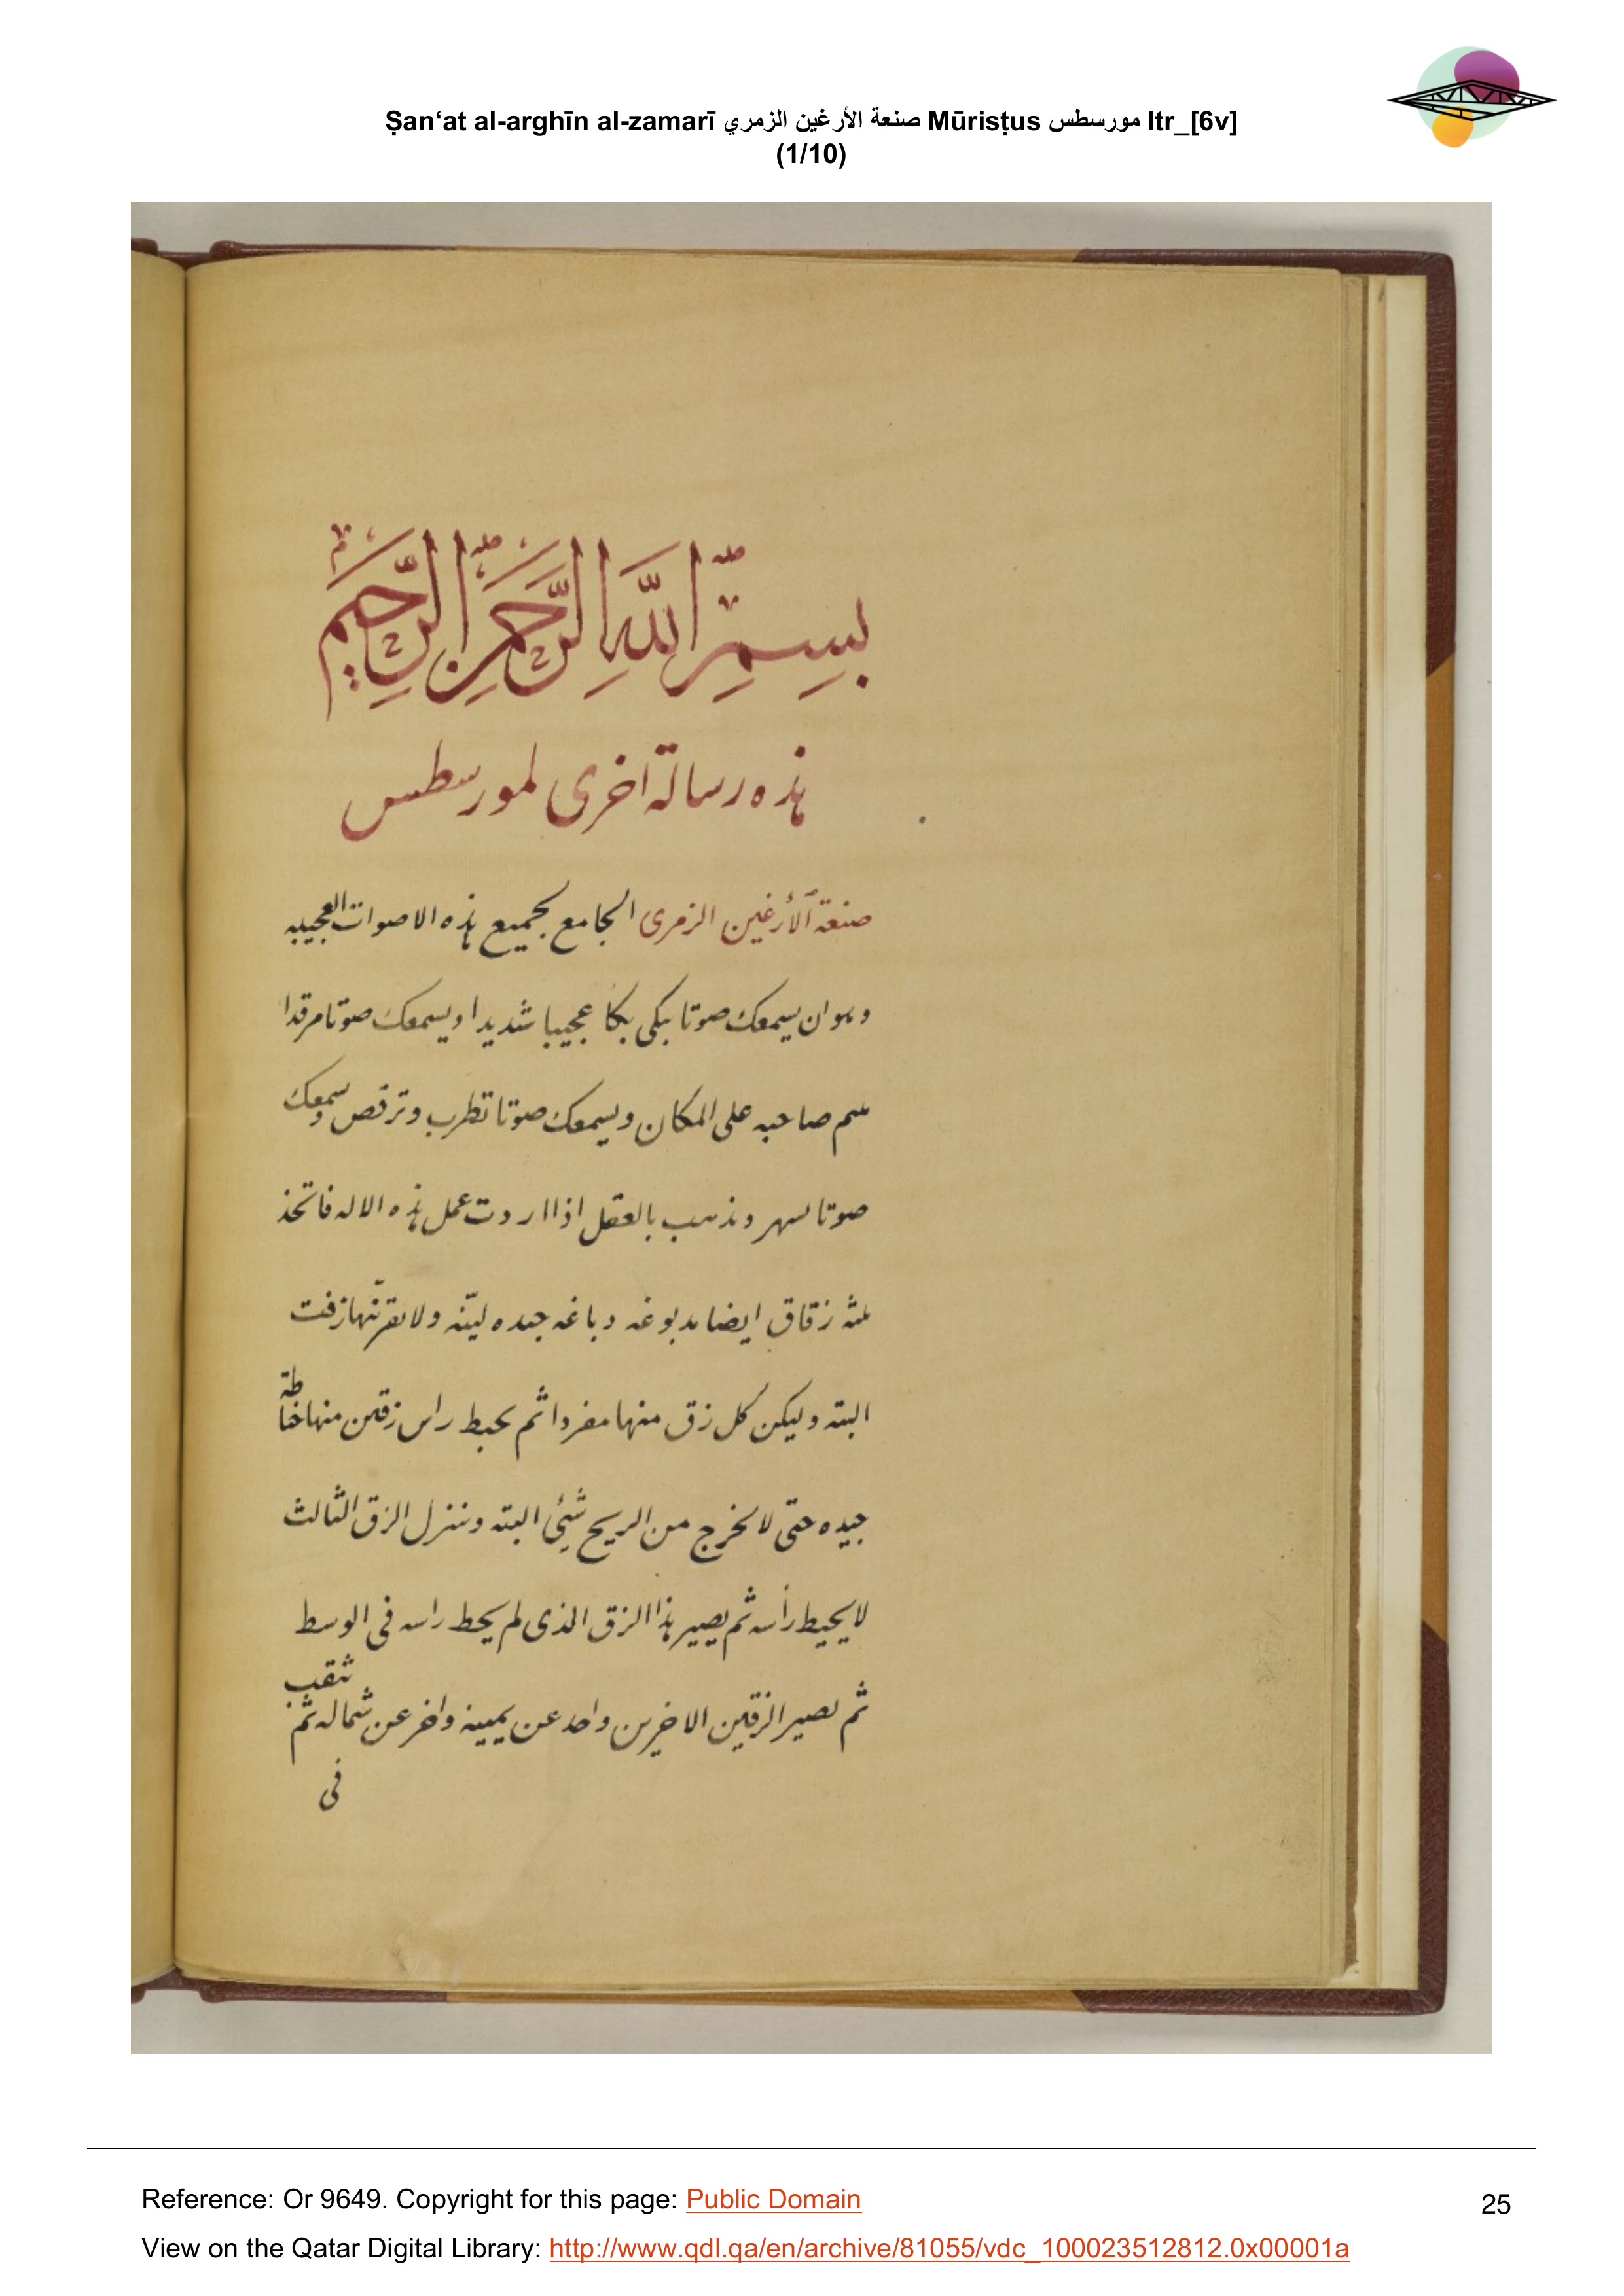 Ṣan‘at al-arghīn al-zamarī صنعة الأرغين الزمري Mūrisṭus مورسطس ltr_[6v]
(1/10)
بِسمِ اللّٰهِ الرَّحمٰنِ الرَّحِيمِ
هذه رسالة اخرى لمورسطس
صنعة الأرغين الزمرى الجامع لجميع هذه الاصوات العجيبه
وهو ان يسمعك صوتا يبكى بكا عجيبا شديدا ويسمعك صوتا مرقدا
صاحبه على المكان ويسمعك صوتا تطرب وترقص وسمعك
صوتا لسهر وتذهب بالعقل اذا اردت عمل هذه الاله فاتخذ
ثلثه زقاق ايضا مدبوغه دباغه جيده ليّنه ولا تقربّنها زفت
البته وليكن كل زق منها مفردا ثم يحيط راس زقين منها خاطة
جيده حتى لا يخرج من الريح شئ البته وننزل الزق الثالث
لا يحيط رأسه ثم يصير هذا الزق الذى لم يحط راسه فى الوسط
ثم تصير الزقين الاخرين واحد عن يمينه واخر عن شماله ثم نثقب
فى
Reference: Or 9649. Copyright for this page: Public Domain
25
View on the Qatar Digital Library: http://www.qdl.qa/en/archive/81055/vdc_100023512812.0x00001a